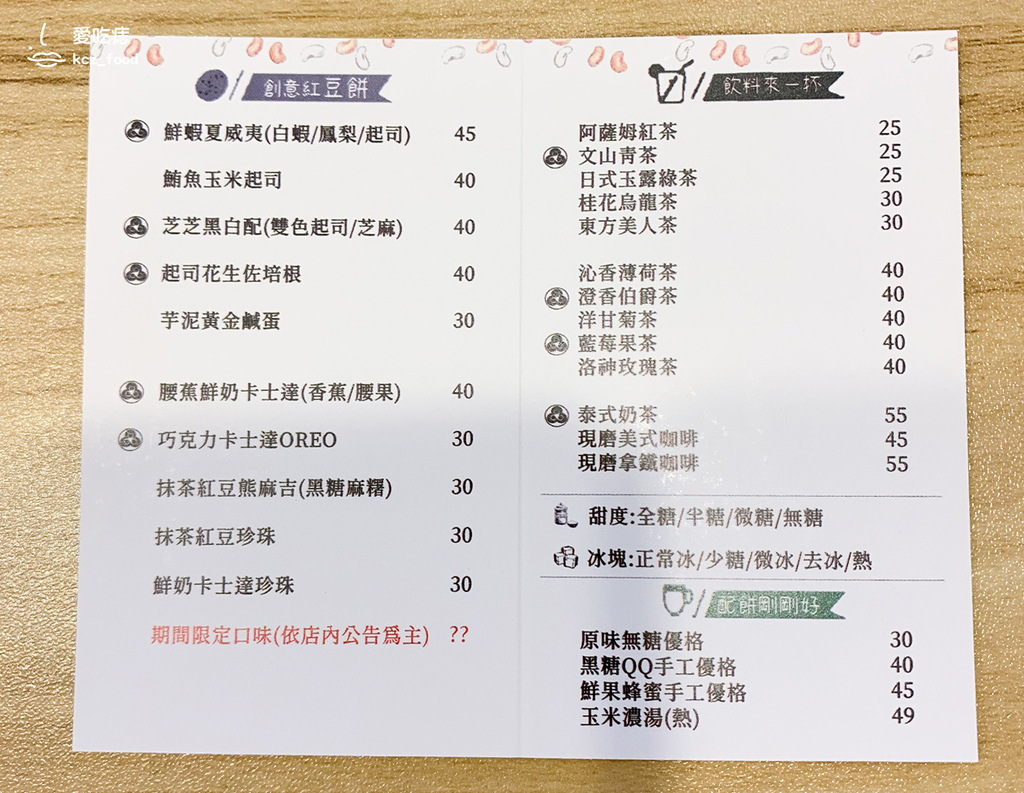 愛吃痣
kcz_food
創意紅豆餅
鮮蝦夏威夷(白蝦/鳳梨/起司) 45
鮪魚玉米起司 40
芝芝黑白配(雙色起司/芝麻) 40
起司花生佐培根 40
芋泥黃金鹹蛋 30
腰蕉鮮奶卡士達(香蕉/腰果) 40
巧克力卡士達OREO 30
抹茶紅豆熊麻吉(黑糖麻糬) 30
抹茶紅豆珍珠 30
鮮奶卡士達珍珠 30
期間限定口味(依店內公告為主) ??
飲料來一杯
阿薩姆紅茶 25
文山青茶 25
日式玉露綠茶 25
桂花烏龍茶 30
東方美人茶 30
沁香薄荷茶 40
澄香伯爵茶 40
洋甘菊茶 40
藍莓果茶 40
洛神玫瑰茶 40
泰式奶茶 55
現磨美式咖啡 45
現磨拿鐵咖啡 55
甜度:全糖/半糖/微糖/無糖
冰塊:正常冰/少糖/微冰/去冰/熱
配餅剛剛好
原味無糖優格 30
黑糖QQ手工優格 40
鮮果蜂蜜手工優格 45
玉米濃湯(熱) 49